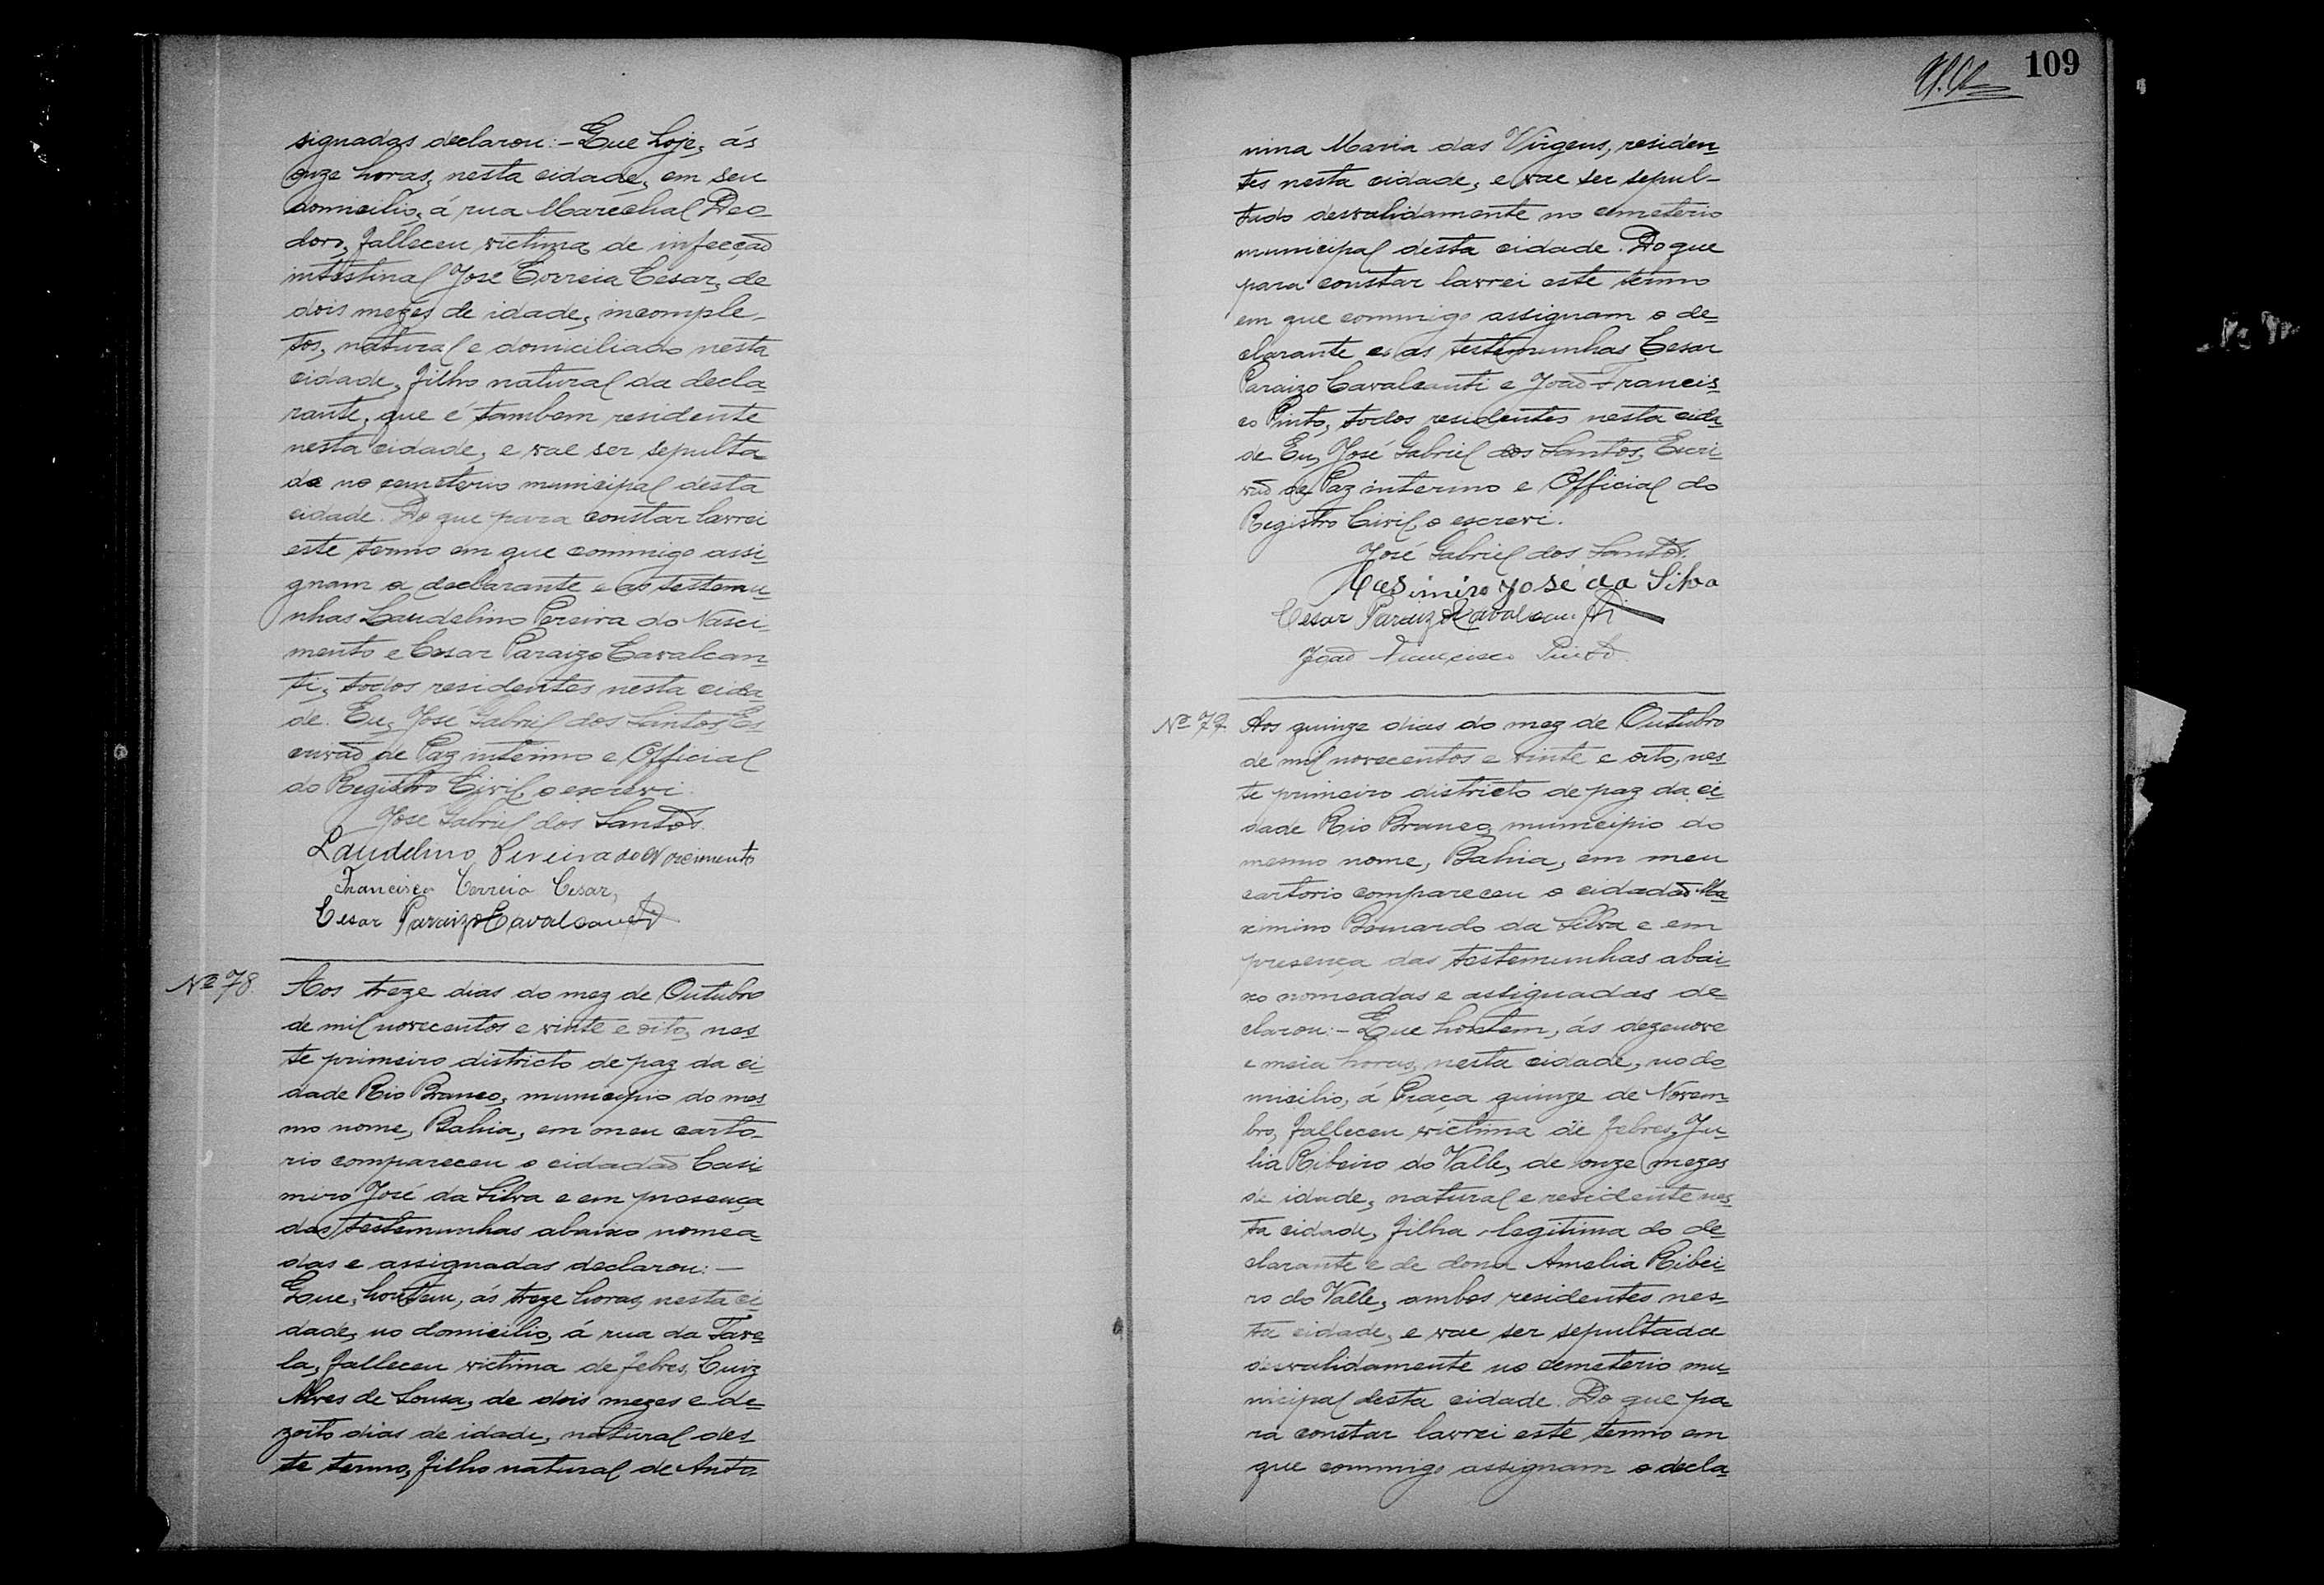 signadas declarou:- Que hoje, ás
onze horas, nesta cidade, em seu
domicilio, á rua Marechal Deo-
doro, falleceu victima de infecção
intestinal José Correia Cesar, de
dois mezes de idade, incomple-
tos, natural e domiciliado nesta
cidade, filho natural da decla
rante, que é tambem residente
nesta cidade, e vae ser sepulta
do no cemeterio municipal desta
cidade. Do que para constar lavrei
este termo em que commigo assi-
gnam a declarante e as testemu-
nhas Laudelino Pereira do Nasci-
mento e Cesar Paraizo Cavalcan-
ti, todos residentes nesta cida-
de. Eu, José Gabriel dos Santos, Es-
crivão de Paz interino e Official
do Registro Civil, o escrevi.
José Gabriel dos Santos.
Laudelino Pereira do Nascimento
Francisca Correia Cesar,
Cesar Paraizo Cavalcanti
Nº 78. Aos treze dias do mez de Outubro
de mil novecentos e vinte e oito, nes-
te primeiro districto de paz da ci-
dade Rio Branco, municipio do mes-
mo nome, Bahia, em meu carto-
rio compareceu o cidadão Casi-
miro José da Silva e em presença
das testemunhas abaixo nomea-
das e assignadas declarou:-
Que, hontem, ás treze horas, nesta ci-
dade, no domicilio, á rua da Fave-
la, falleceu victima de febres, Luiz
Alves de Sousa, de dois mezes e de-
zoito dias de idade, natural des-
te termo, filho natural de Anto-
109
nina Maria das Virgens, residen-
tes nesta cidade, e vae ser sepul-
tado desvalidamente no cemeterio
municipal desta cidade. Do que
para constar lavrei este termo
em que commigo assignam o de-
clarante e as testemunhas Cesar
Paraizo Cavalcanti e João Francis-
co Pinto, todos residentes nesta cida-
de. Eu, José Gabriel dos Santos, Escri-
vão de Paz interino e Official do
Registro Civil, o escrevi.
José Gabriel dos Santos.
Casimiro José da Silva
Cesar Paraizo Cavalcanti
João Francisco Pinto.
Nº 79. Aos quinze dias do mez de Outubro
de mil novecentos e vinte e oito, nes-
te primeiro districto de paz da ci-
dade Rio Branco, municipio do
mesmo nome, Bahia, em meu
cartorio compareceu o cidadão Ma-
ximino Bernardo da Silva e em
presença das testemunhas abai-
xo nomeadas e assignadas de-
clarou:- Que hontem, ás dezenove
e meia horas, nesta cidade, no do
micilio, á Praça quinze de Novem-
bro, falleceu victima de febres, Ju-
lia Ribeiro do Valle, de onze mezes
de idade, natural e residente nes-
ta cidade, filha legitima do de-
clarante e de dona Amelia Ribei-
ro do Valle, ambos residentes nes-
ta cidade, e vae ser sepultada
desvalidamente no cemeterio mu-
nicipal desta cidade. Do que pa-
ra constar lavrei este termo em
que commigo assignam o decla-